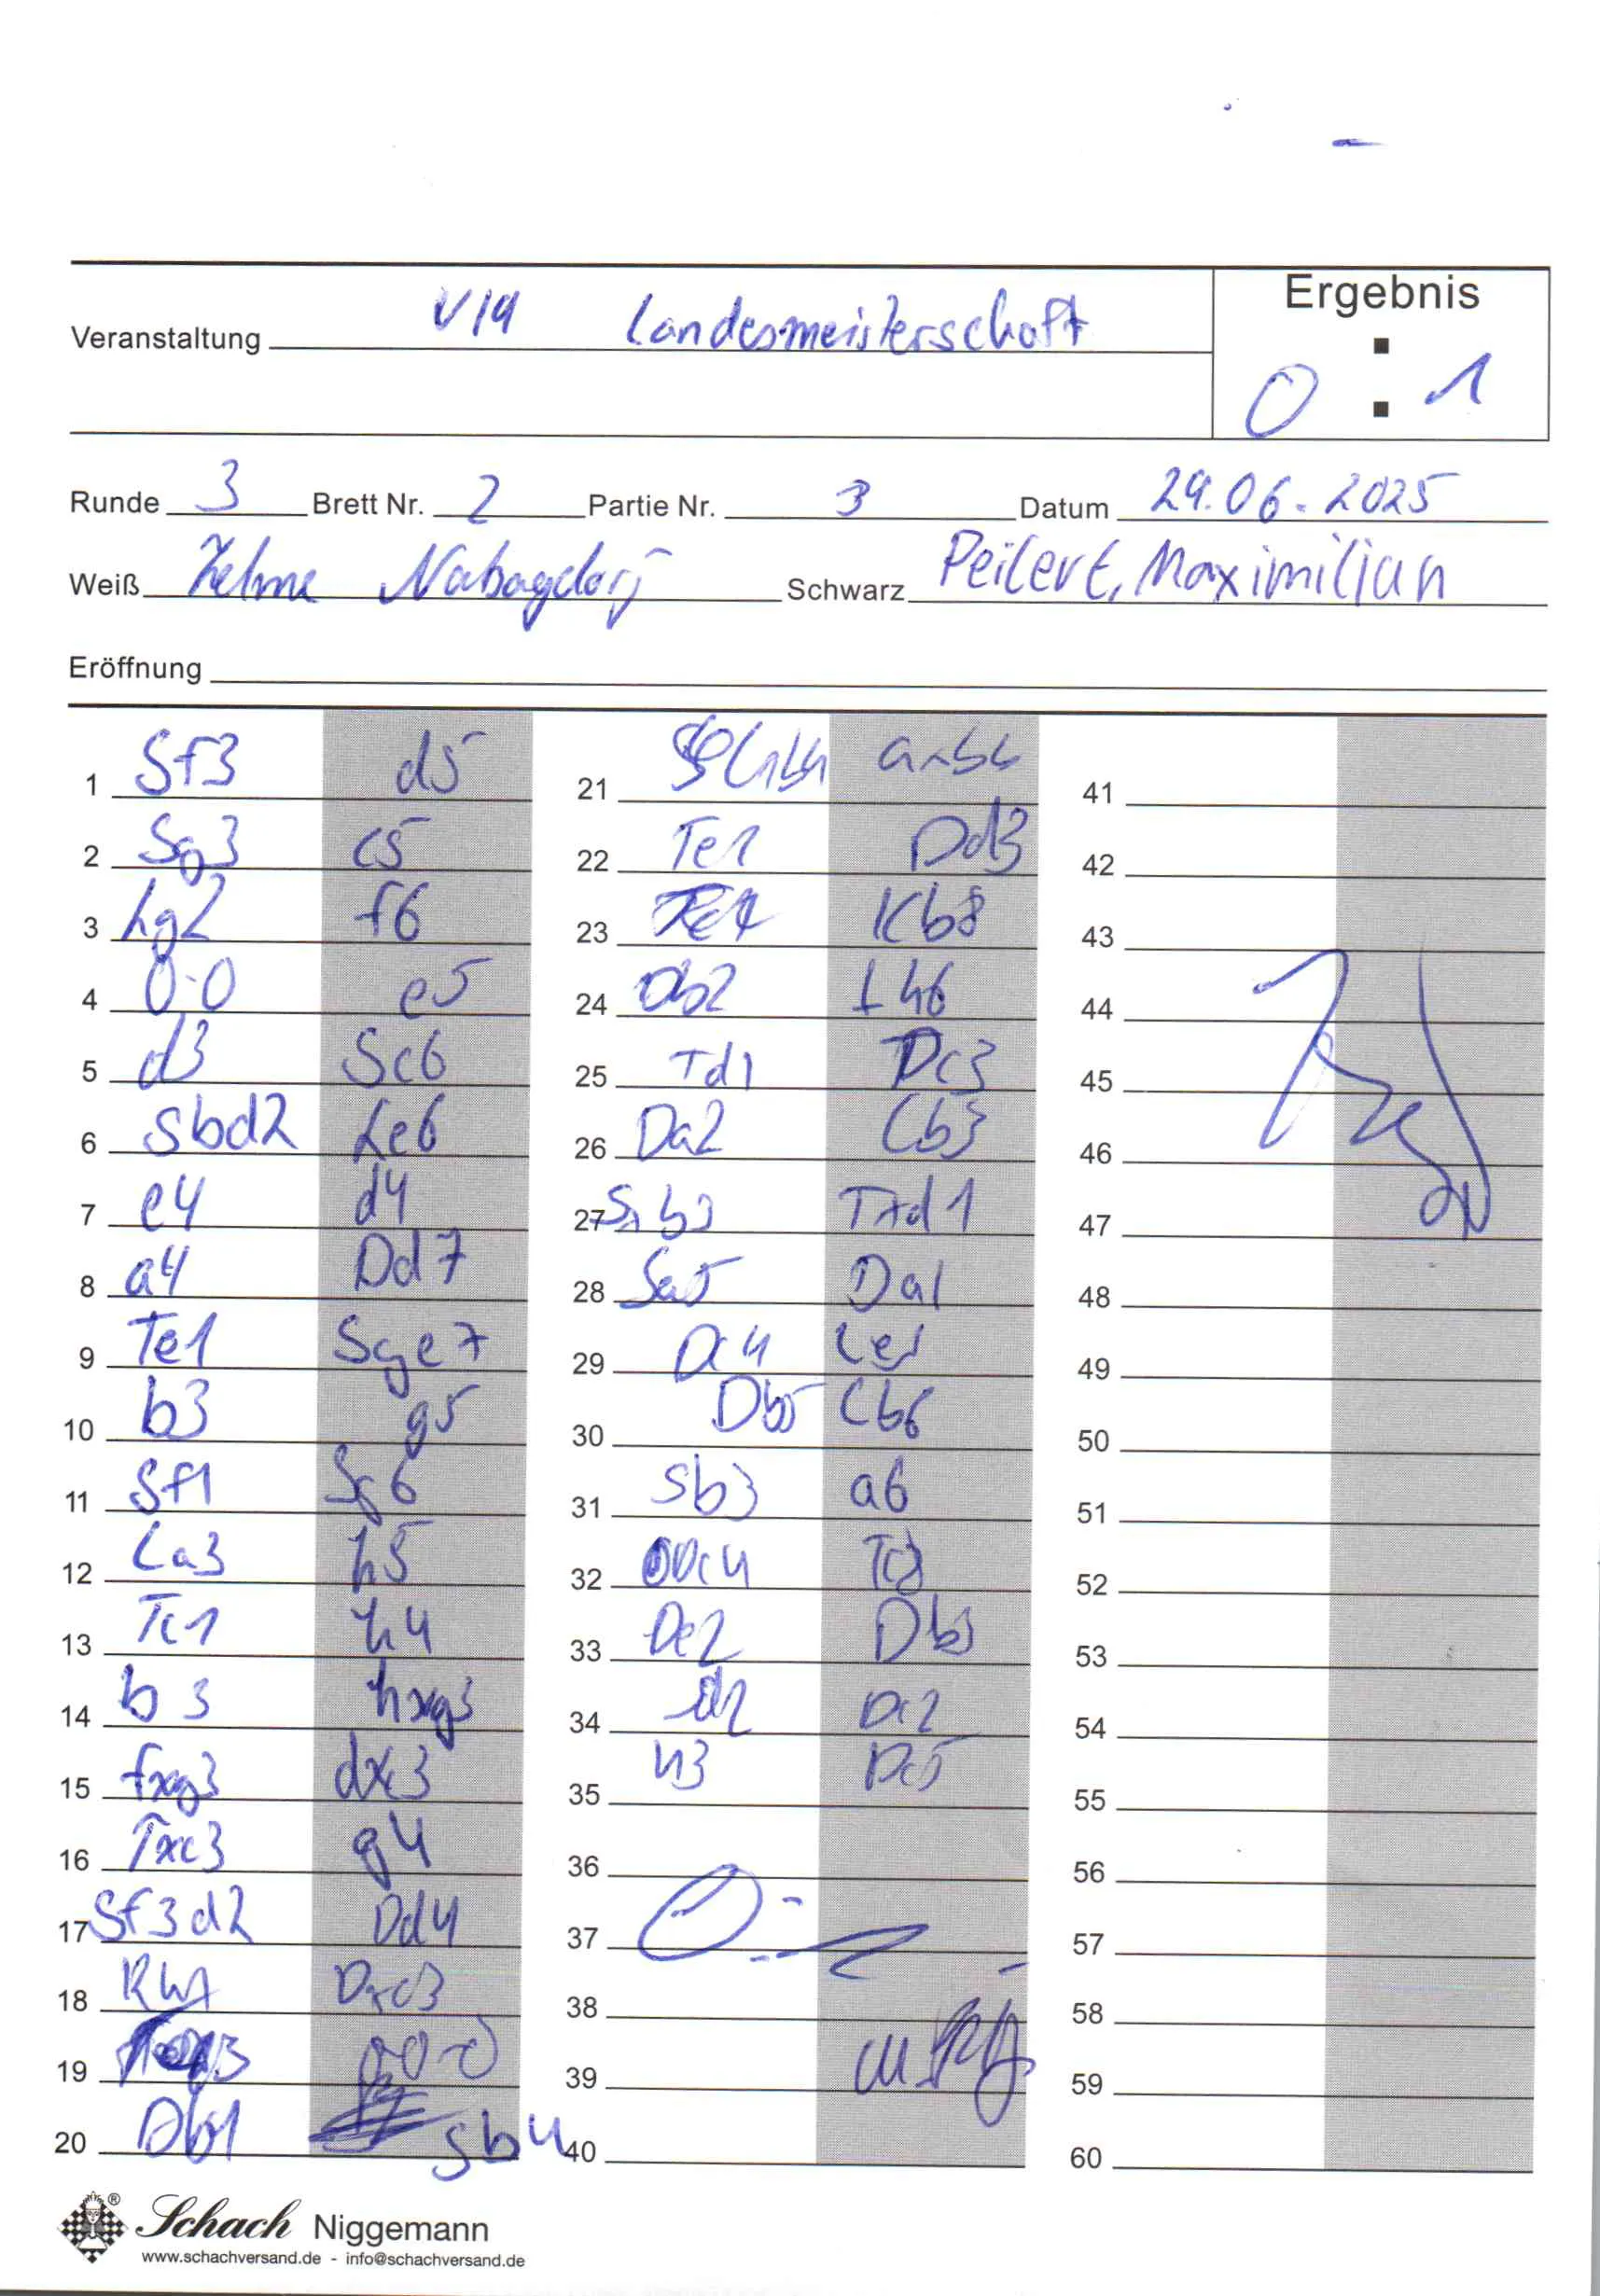 Ergebnis
Veranstaltung U19 Landesmeisterschaft
0 : 1
Runde 3 Brett Nr. 2 Partie Nr. 3 Datum 29.06.2025
Weiß Schwarz Peilert, Maximilian
Eröffnung
1 Sf3 d5
2 Sg3 c5
3 Lg2 f6
4 0-0 e5
5 d3 Sc6
6 Sbd2 Le6
7 e4 d4
8 a4 Dd7
9 Te1 Sge7
10 b3 g5
11 Sf1 Sg6
12 La3 h5
13 Tc1 h4
14 b3 hxg3
15 fxg3 dxc3
16 Txc3 g4
17 Sf3d2 Dd4
18 Kh1 Dxc3
19
20 Db1 Sb4
21 axb4
22 Te1 Dd3
23 Kb8
24 Db2 Lh6
25 Td1 Dc3
26 Da2 Lb3
27 Sxb3 Txd1
28 Sa5 Da1
29 Dc4 Le1
30 Db5 Lb6
31 Sb3 a6
32 Dc4
33 De2 Db3
34 d2 Dc2
35 h3 Dc5
36
37
38
39
40
41
42
43
44
45
46
47
48
49
50
51
52
53
54
55
56
57
58
59
60
® Schach Niggemann
www.schachversand.de - info@schachversand.de